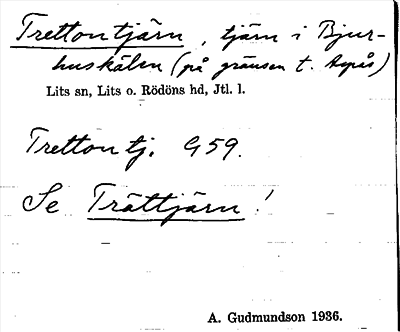 Trettontjärn, tjärn i Bjur-
huskälen (på gränsen t. Aspås)
Lits sn, Lits o. Rödöns hd, Jtl. l.
Trettontj. G59.
Se Trättjärn!
A. Gudmundson 1936.